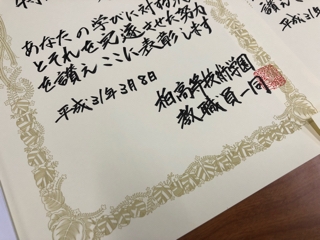 あなたの学びに対する
とそれを完遂させた努力
を讃えここに表彰します
平成31年3月8日
柏高等技術学園
教職員一同
平成31年